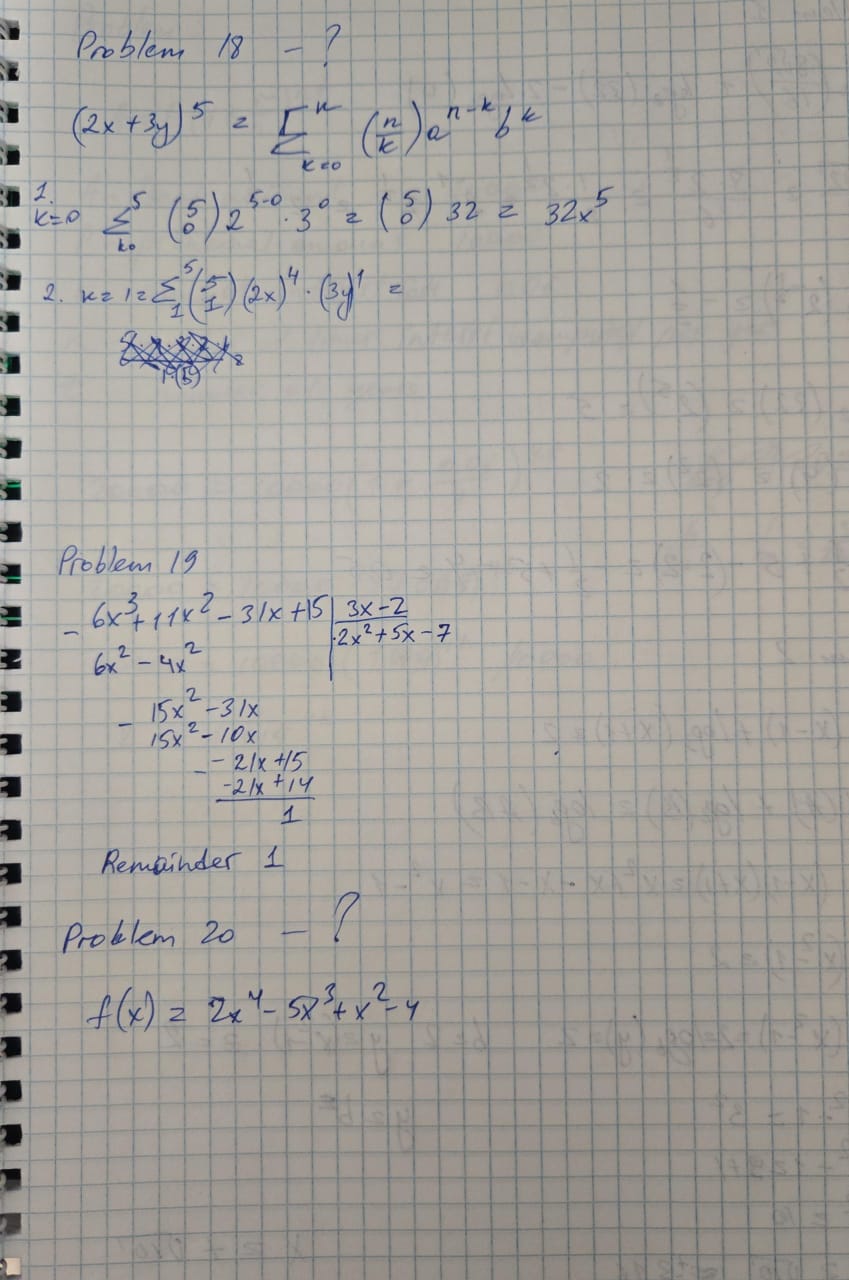 Problem 18 - ?
(2x + 3y)^5 = Σ_{k=0}^{n} (n/k) a^{n-k} b^k
1.
k=0 Σ_{k0}^{5} (5 0) 2^{5-0} · 3^0 = (5 0) 32 = 32x^5
2. k = 1 = Σ_{1}^{5} (5 1) (2x)^4 · (3y)^1 =
Problem 19
- 6x^3 + 11x^2 - 31x + 15 | 3x - 2
6x^2 - 4x^2 | 2x^2 + 5x - 7
- 15x^2 - 31x
15x^2 - 10x
- - 21x + 15
-21x + 14
1
Remainder 1
Problem 20 - ?
f(x) = 2x^4 - 5x^3 + x^2 - 4